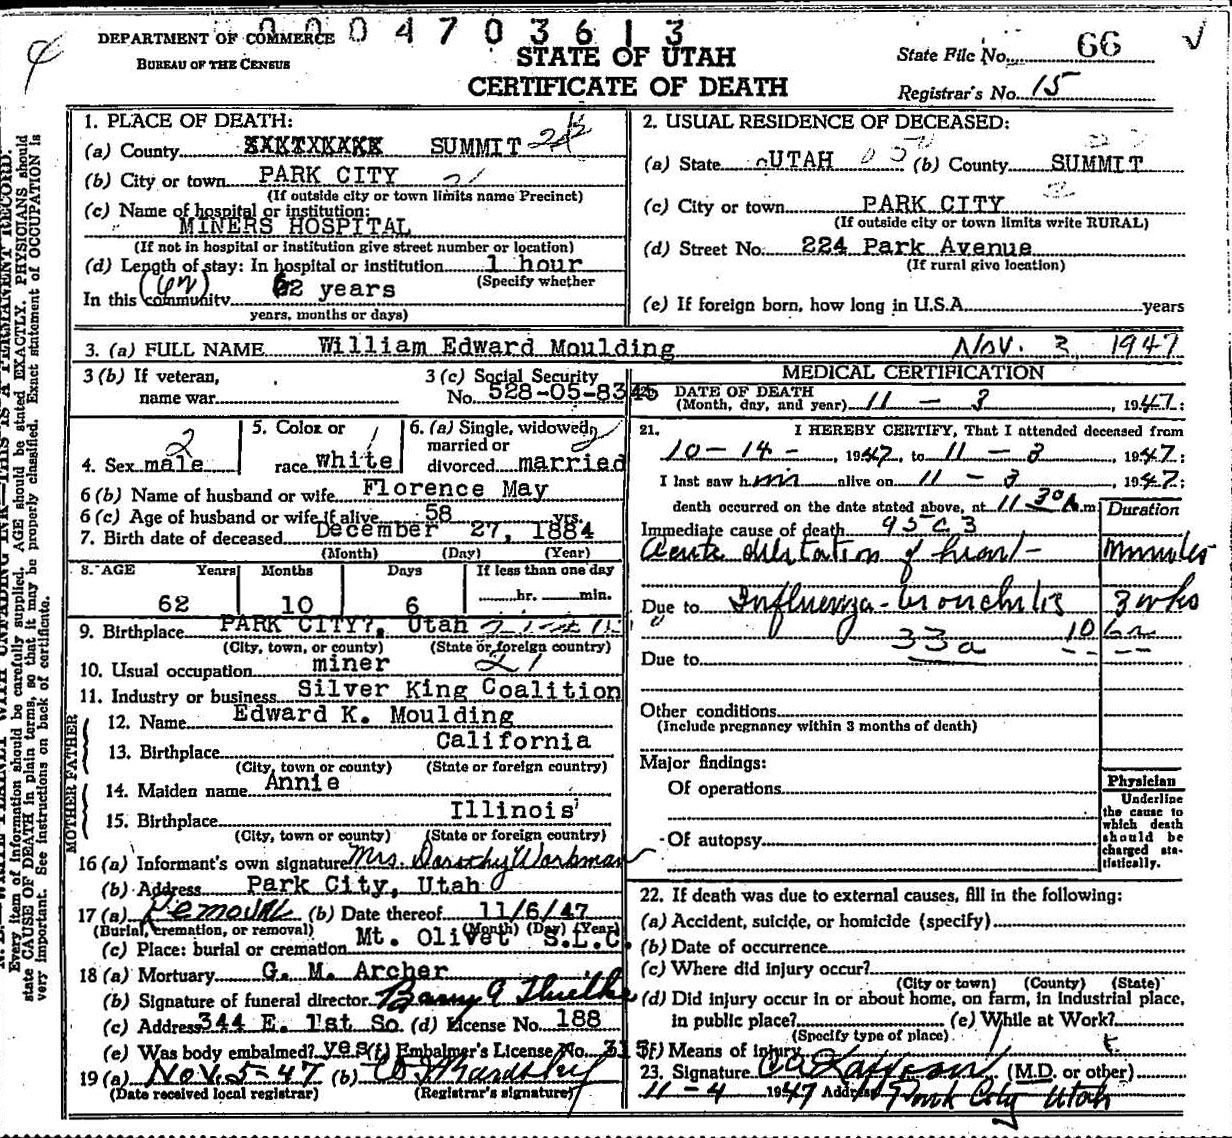 0004703613
DEPARTMENT OF COMMERCE
BUREAU OF THE CENSUS
STATE OF UTAH
CERTIFICATE OF DEATH
State File No. 66
Registrar's No. 15
1. PLACE OF DEATH:
(a) County XXXXXXXXX SUMMIT
(b) City or town PARK CITY 21
(If outside city or town limits name Precinct)
(c) Name of hospital or institution:
MINERS HOSPITAL
(If not in hospital or institution give street number or location)
(d) Length of stay: In hospital or institution 1 hour
(Specify whether
In this community 62 years (62)
years, months or days)
2. USUAL RESIDENCE OF DECEASED:
(a) State UTAH (b) County SUMMIT
(c) City or town PARK CITY
(If outside city or town limits write RURAL)
(d) Street No. 224 Park Avenue
(If rural give location)
(e) If foreign born, how long in U.S.A. years
3. (a) FULL NAME William Edward Moulding Nov. 3 1947
3 (b) If veteran,
name war
3 (c) Social Security
No. 528-05-8345
4. Sex male
5. Color or
race white
6. (a) Single, widowed,
married or
divorced married
6 (b) Name of husband or wife Florence May
6 (c) Age of husband or wife if alive 58 yrs.
7. Birth date of deceased December 27, 1884
(Month) (Day) (Year)
8. AGE Years Months Days If less than one day
62 10 6 hr. min.
9. Birthplace PARK CITY?, Utah
(City, town, or county) (State or foreign country)
10. Usual occupation miner 21
11. Industry or business Silver King Coalition
FATHER
12. Name Edward K. Moulding
13. Birthplace California
(City, town or county) (State or foreign country)
MOTHER
14. Maiden name Annie
15. Birthplace Illinois
(City, town or county) (State or foreign country)
16 (a) Informant's own signature Mrs. Dorothy Workman
(b) Address Park City, Utah
17 (a) Removal (b) Date thereof 11/6/47
(Burial, cremation, or removal) (Month) (Day) (Year)
(c) Place: burial or cremation Mt. Olivet S.L.C.
18 (a) Mortuary G. M. Archer
(b) Signature of funeral director
(c) Address 344 E. 1st So. (d) License No. 188
(e) Was body embalmed? yes (f) Embalmer's License No. 315
19 (a) Nov. 5-47 (b)
(Date received local registrar) (Registrar's signature)
MEDICAL CERTIFICATION
DATE OF DEATH
(Month, day, and year) 11 - 3, 1947:
21. I HEREBY CERTIFY, That I attended deceased from
10-14-, 1947, to 11 - 3, 1947:
I last saw him alive on 11 - 3, 1947:
death occurred on the date stated above, at 11 30 A.m Duration
Immediate cause of death 95c3
Acute dilatation of heart - Minutes
Due to Influenza-bronchitis 3 wks
33a 10
Due to
Other conditions
(Include pregnancy within 3 months of death)
Major findings:
Of operations
Of autopsy
Physician
Underline
the cause to
which death
should be
charged sta-
tistically.
22. If death was due to external causes, fill in the following:
(a) Accident, suicide, or homicide (specify)
(b) Date of occurrence
(c) Where did injury occur?
(City or town) (County) (State)
(d) Did injury occur in or about home, on farm, in industrial place,
in public place? (e) While at Work?
(Specify type of place)
(f) Means of injury
23. Signature (M.D. or other)
11-4 1947 Address Park City Utah
Every item of information should be carefully supplied. AGE should be stated EXACTLY. PHYSICIANS should
state CAUSE OF DEATH in plain terms, so that it may be properly classified. Exact statement of OCCUPATION is
very important. See instructions on back of certificate.